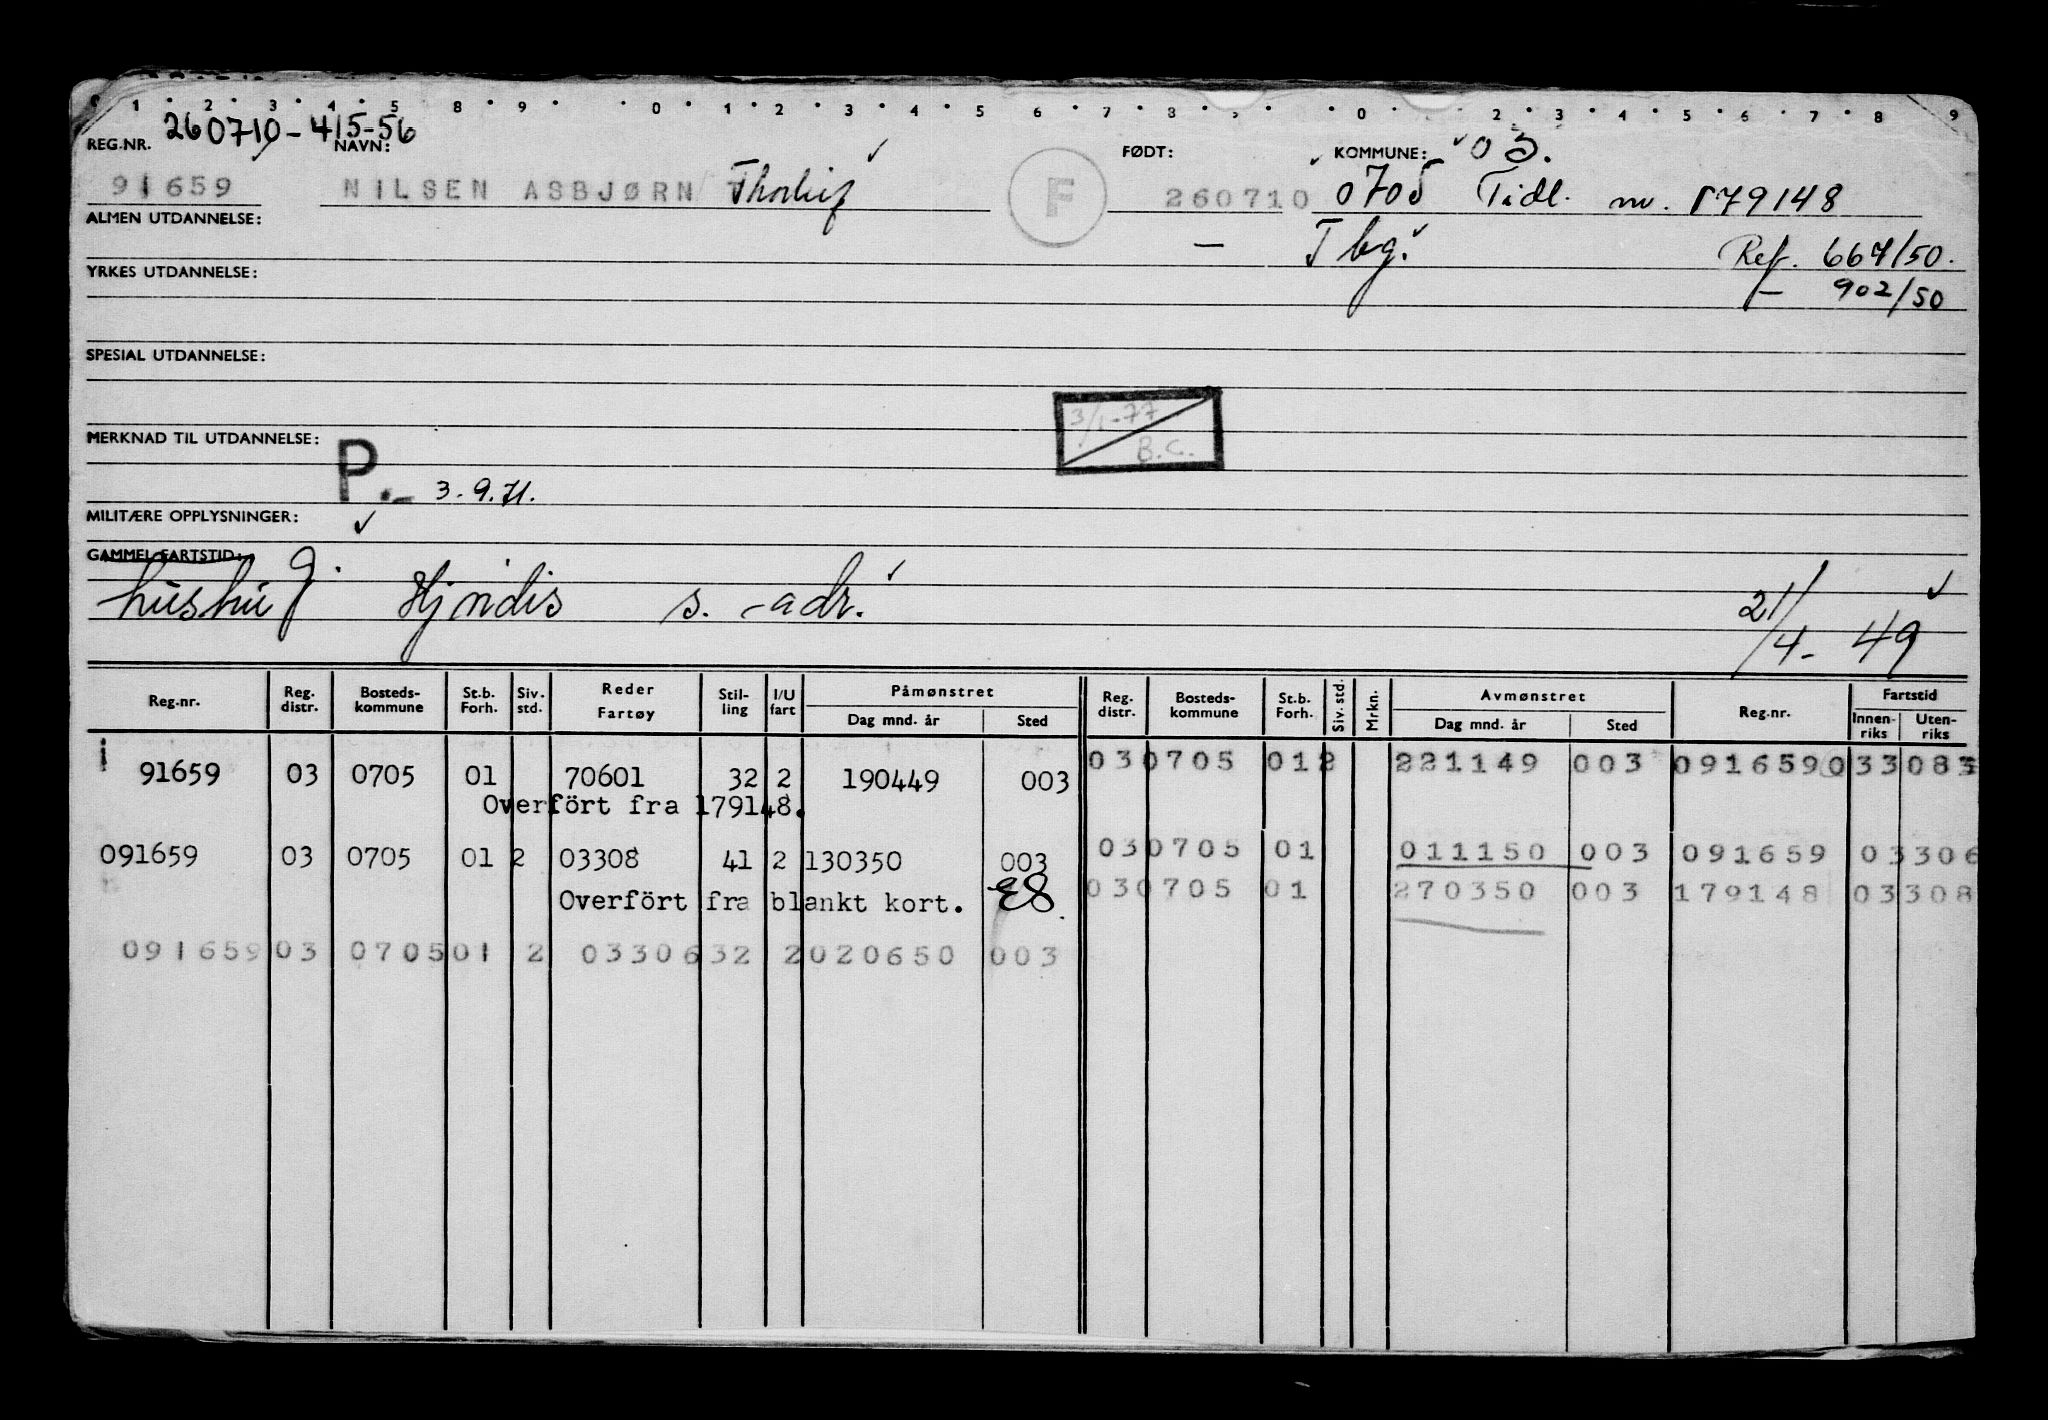 1 2 3 4 5 8 9 0 1 2 3 4 5 6 7 8 9 0 2 3 4 5 6 7 8 9
260710-415-56
REG.NR. NAVN: FØDT: KOMMUNE: 03.
91659 NILSEN ASBJØRN Thorleif F 260710 0705 Tidl. nr. 179148
ALMEN UTDANNELSE: — Tbg. Ref. 667/50.
YRKES UTDANNELSE: — 902/50
SPESIAL UTDANNELSE:
3/1-77
B.C.
MERKNAD TIL UTDANNELSE:
P.- 3.9.71.
MILITÆRE OPPLYSNINGER:
GAMMEL FARTSTID:
g. Hjørdis s. adr. 21/4-49
Reg.nr. Reg. distr. Bosteds-kommune St.b. Forh. Siv. std. Reder Fartøy Stil-ling I/U fart Påmønstret Dag mnd. år Sted Reg. distr. Bosteds-kommune St.b. Forh. Siv. std. Mrkn. Avmønstret Dag mnd. år Sted Reg.nr. Fartstid Innen-riks Uten-riks
030705 012 221149 003 091659 0 33 083
91659 03 0705 01 70601 32 2 190449 003
Overfört fra 179148.
030705 01 011150 003 091659 03306
091659 03 0705 01 2 03308 41 2 130350 003
030705 01 270350 003 179148 03308
Overfört fra blankt kort.
091659 03 0705 01 2 03306 32 2 020650 003